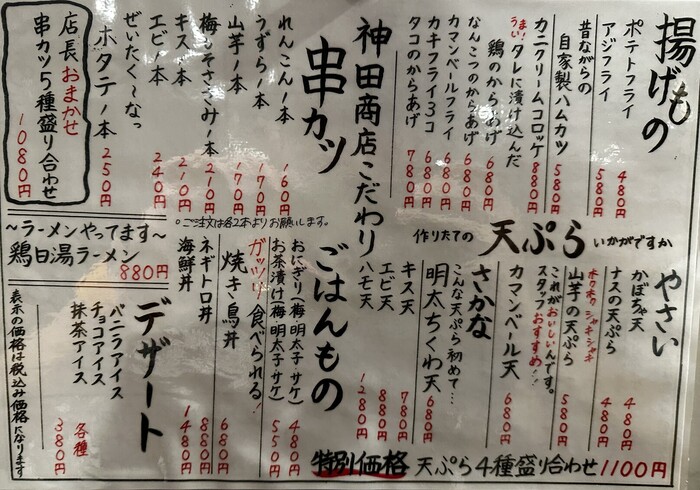 揚げもの
ポテトフライ 480円
アジフライ 580円
昔ながらの
自家製ハムカツ 580円
カニクリームコロッケ 880円
うまい!タレに漬け込んだ
鶏のからあげ 680円
なんこつのからあげ 680円
カマンベールフライ 680円
カキフライ3コ 680円
タコのからあげ 780円
神田商店こだわり
串カツ
れんこん1本 160円
うずら1本 170円
山芋1本 170円
梅しそささみ1本 210円
キス1本 210円
エビ1本 240円
ぜいたく〜なっ
ホタテ1本 250円
○ご注文は各2本よりお願いします。
店長おまかせ
串カツ5種盛り合わせ
1080円
作りたての 天ぷら いかがですか
やさい
かぼちゃ天 480円
ナスの天ぷら 480円
ホクホクシャキシャキ
山芋の天ぷら 580円
これがおいしいんです。
スタッフおすすめ!!
カマンベール天 680円
さかな
こんな天ぷら初めて…
明太ちくわ天 680円
キス天 780円
エビ天 880円
ハモ天 1280円
特別価格 天ぷら4種盛り合わせ 1100円
ごはんもの
おにぎり(梅 明太子 サケ) 480円
お茶漬け(梅 明太子 サケ) 550円
ガッツリ食べられる!
焼き鳥丼 680円
ネギトロ丼 880円
海鮮丼 1480円
~ラーメンやってます~
鶏白湯ラーメン
880円
デザート
バニラアイス
チョコアイス
抹茶アイス
各種
380円
表示の価格は税込み価格になります